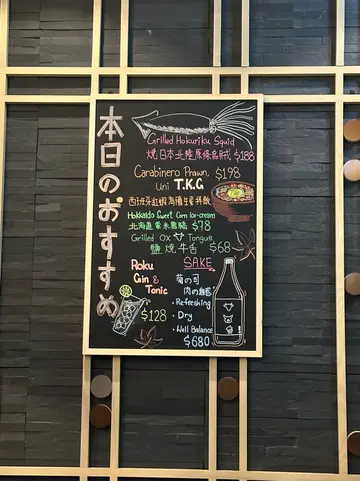 本日のおすすめ
Grilled Hokuriku Squid
燒日本北陸原條魷魚 $188
Carabinero Prawn, $198
Uni T.K.G
西班牙紅蝦海膽生雞蛋拌飯
Hokkaido Sweet Corn Ice-cream
北海道粟米雪糕 $78
Grilled OX Tongue $68
鹽燒牛舌
Roku
Gin &
Tonic
$128
SAKE
菊の司
肉の
• Refreshing
• Dry
• Well Balance
$680